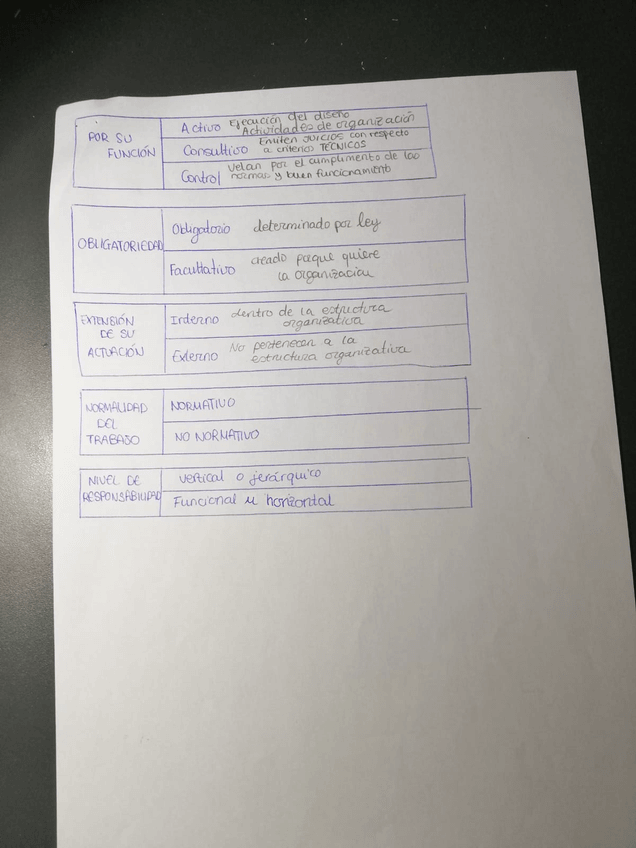 POR SU
FUNCIÓN
Activo Ejecución del diseño
Actividades de organización
Consultivo Emiten JUICIOS con respecto
a criterios TÉCNICOS
Control velan por el cumplimento de las
normas y buen funcionamiento
OBLIGATORIEDAD
Obligatorio determinado por ley
Facultativo creado porque quiere
la organización
EXTENSIÓN
DE SU
ACTUACIÓN
Interno dentro de la estructura
organizativa
Externo No pertenecen a la
estructura organizativa
NORMALIDAD
DEL
TRABAJO
NORMATIVO
NO NORMATIVO
NIVEL DE
RESPONSABILIDAD
vertical o jerárquico
Funcional u horizontal